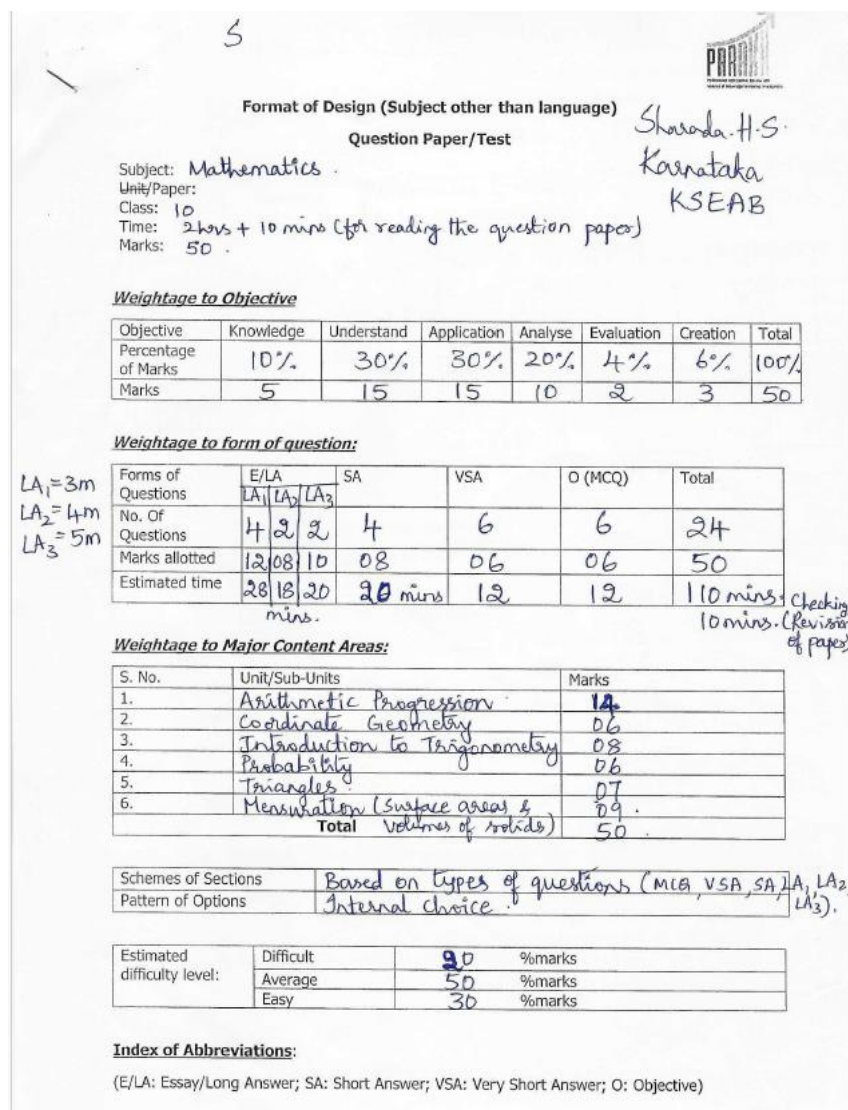 5
PARAKH
Format of Design (Subject other than language)
Question Paper/Test
Sharada.H.S.
Karnataka
KSEAB
Subject: Mathematics.
Unit/Paper:
Class: 10
Time: 2hrs + 10 mins (for reading the question paper)
Marks: 50.
Weightage to Objective
Objective Knowledge Understand Application Analyse Evaluation Creation Total
Percentage of Marks 10% 30% 30% 20% 4% 6% 100%
Marks 5 15 15 10 2 3 50
Weightage to form of question:
LA1=3m
LA2=4m
LA3=5m
Forms of Questions E/LA SA VSA O (MCQ) Total
LA1 LA2 LA3
No. Of Questions 4 2 2 4 6 6 24
Marks allotted 12 08 10 08 06 06 50
Estimated time 28 18 20 20 mins 12 12 110 mins.
mins.
Checking
10 mins. (Revision
of paper)
Weightage to Major Content Areas:
S. No. Unit/Sub-Units Marks
1. Arithmetic Progression 14
2. Coordinate Geometry 06
3. Introduction to Trigonometry 08
4. Probability 06
5. Triangles 07
6. Mensuration (surface areas & 09.
Total volumes of solids) 50.
Schemes of Sections Based on types of questions (MCQ, VSA, SA, LA1, LA2,
LA3).
Pattern of Options Internal choice.
Estimated difficulty level: Difficult 20 %marks
Average 50 %marks
Easy 30 %marks
Index of Abbreviations:
(E/LA: Essay/Long Answer; SA: Short Answer; VSA: Very Short Answer; O: Objective)